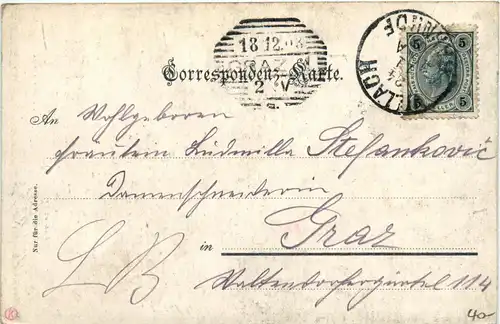 18.12.03
GRAZ
2 V
Correspondenz-Karte.
VILLACH
5 5
5 5
An Wohlgeboren
Fräulein Ludmilla Stefanković
Damenschneiderin
Nur für die Adresse.
LB
in Graz
Waltendorfergürtel 114
40-